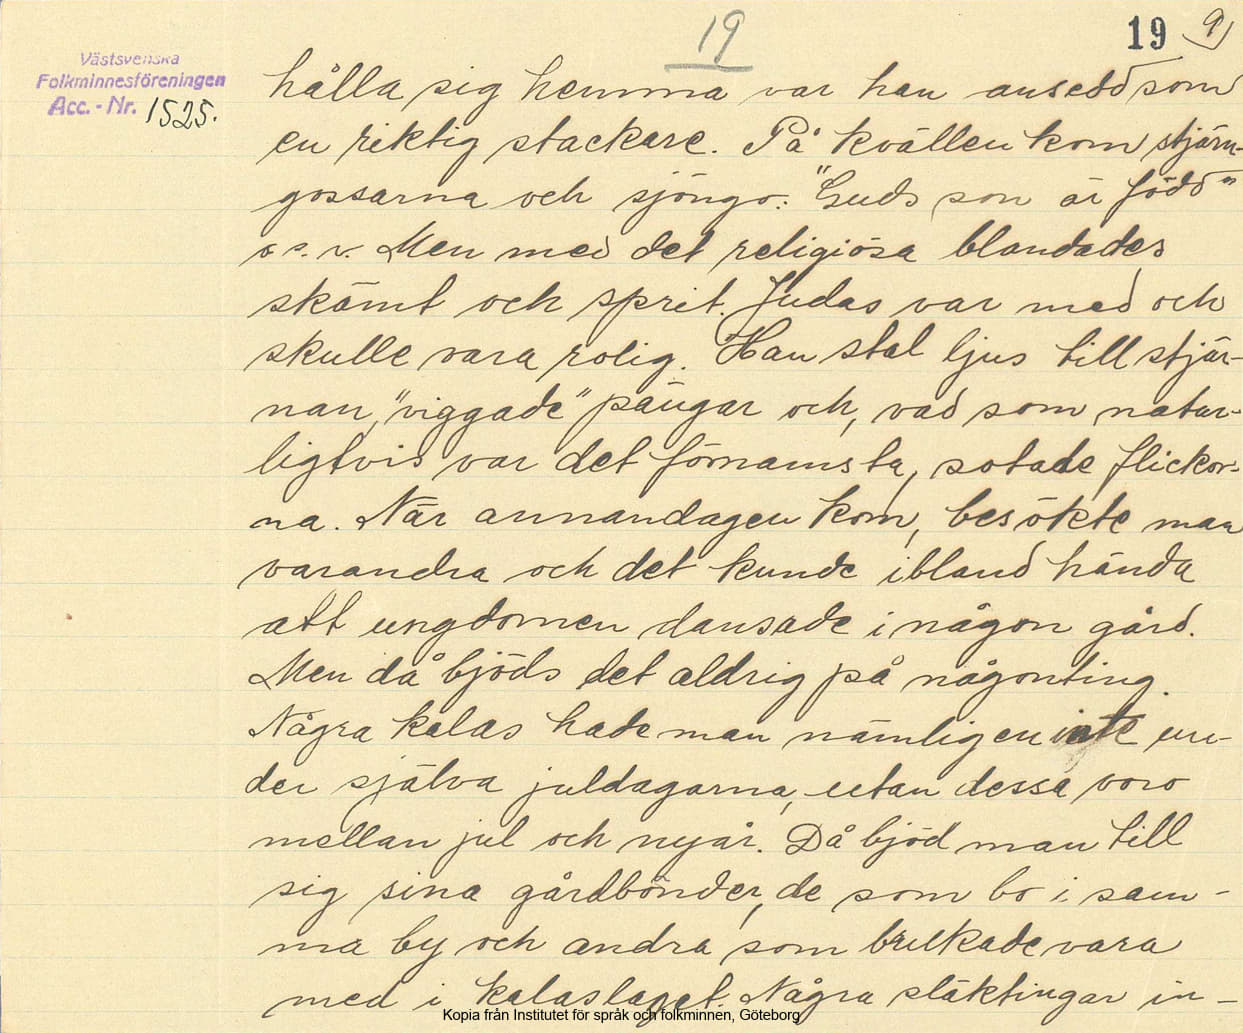 19
19 9)
Västsvenska
Folkminnesföreningen
Acc. - Nr. 1525.
hålla sig hemma var han ansedd som
en riktig stackare. På kvällen kom stjärn-
gossarna och sjöngo: "Guds son är född"
o. s. v. Men med det religiösa blandades
skämt och sprit. Judas var med och
skulle vara rolig. Han stal ljus till stjär-
nan, "viggade" pängar och, vad som natur-
ligtvis var det förnämsta, sotade flickor-
na. När annandagen kom, besökte man
varandra och det kunde ibland hända
att ungdomen dansade i någon gård.
Men då bjöds det aldrig på någonting.
Några kalas hade man nämligen inte un-
der själva juldagarna, utan dessa voro
mellan jul och nyår. Då bjöd man till
sig sina gårdbönder, de som bo i sam-
ma by och andra som brukade vara
med i kalaslaget. Några släktingar in-
Kopia från Institutet för språk och folkminnen, Göteborg